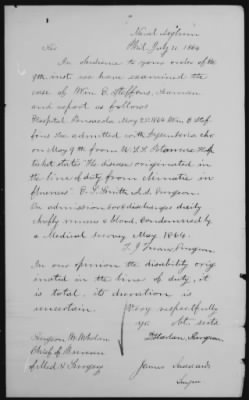 Naval Asylum
Phil. July 11 1864
Sir
In obedience to your order of the
9th inst. we have examined the
case of Wm E. Steffons, Seaman
and report as follows
Hospital Pensacola May 25 1864 Wm E. Stef-
fons was admitted with Dysenteria chr
on May 9th from U.S.S. Potomac Hosp.
ticket states "The disease originated in
the line of duty from climatic in-
fluences"
Surgeon.
On admission discharges daily
chiefly mucus & blood. Condemned by
a Medical Survey May 1864.
Surgeon
In our opinion the disability orig-
inated in the line of duty, it
is total, its duration is
uncertain.
Very respectfully
yr. obt. servts
Surgeon W. Whelan
Surgeon
Chief of Bureau
of Med. & Surgery
James
Surgeon